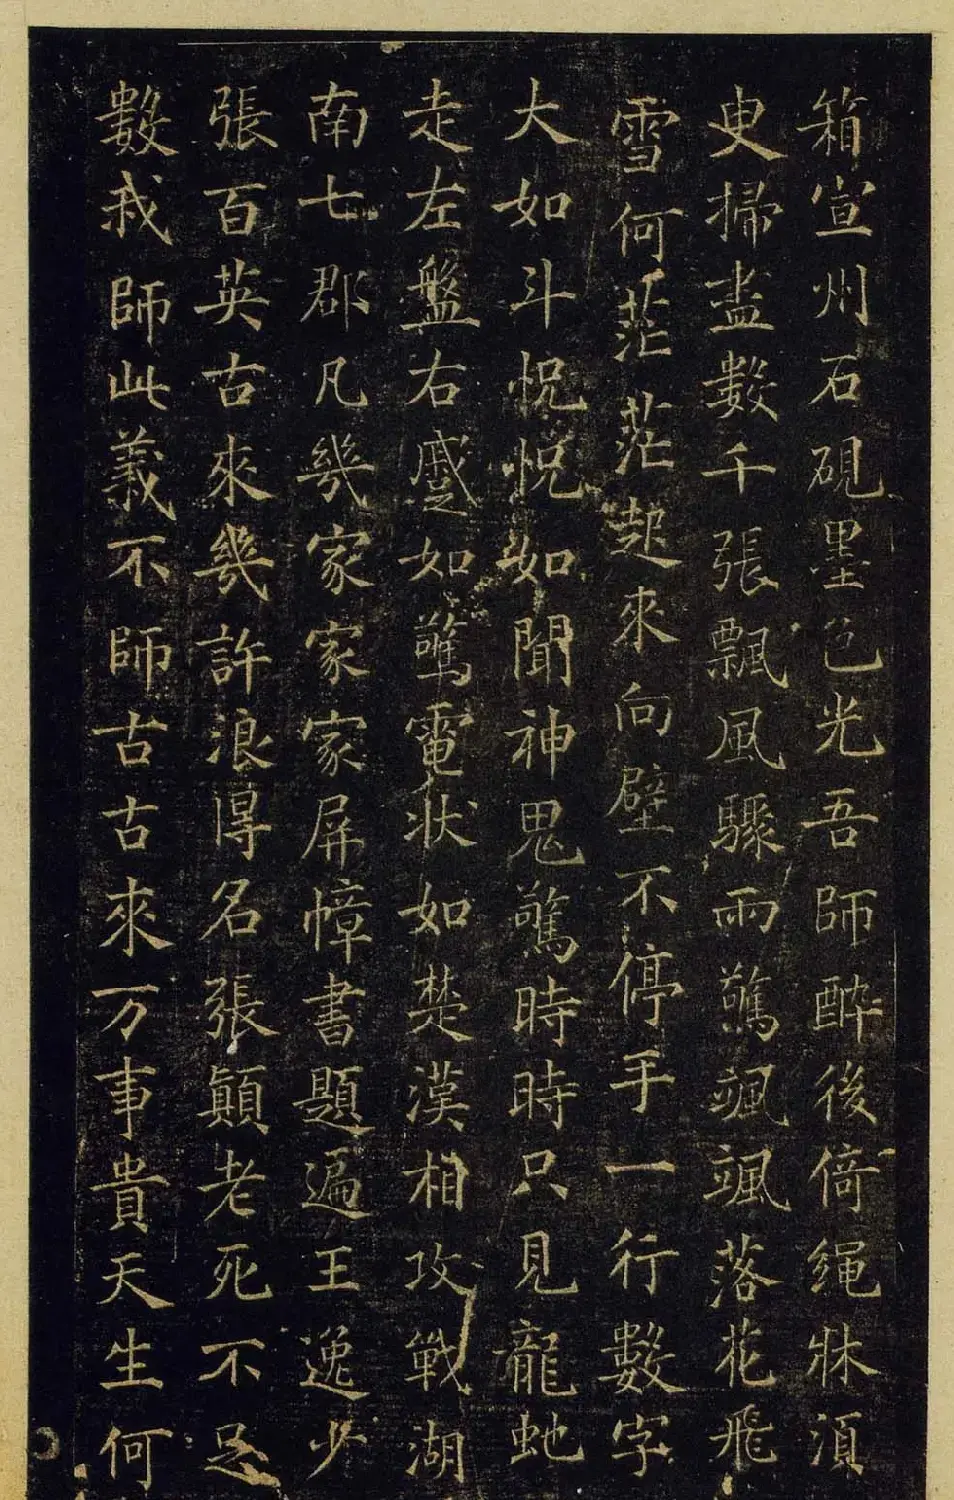 箱宣州石硯墨色光吾師醉後倚繩牀湏
臾掃盡數千張飄風驟雨驚颯颯落花飛
雪何茫茫起來向壁不停手一行數字
大如斗怳怳如聞神鬼驚時時只見龍虵
走左盤右蹙如驚電狀如楚漢相攻戰湖
南七郡凡幾家家家屏幛書題遍王逸少
張百英古來幾許浪得名張顛老死不足
數我師此義不師古古來万事貴天生何